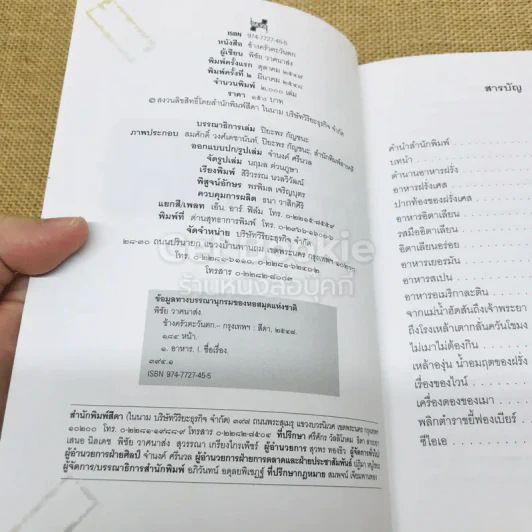 ISBN 974-7727-45-5
หนังสือ ข้างครัวตะวันตก
ผู้เขียน พิชัย วาศนาส่ง
พิมพ์ครั้งแรก ตุลาคม ๒๕๔๗
พิมพ์ครั้งที่ ๒ มีนาคม ๒๕๔๘
จำนวนพิมพ์ ๒,๐๐๐ เล่ม
ราคา ๑๕๐ บาท
© สงวนลิขสิทธิ์โดยสำนักพิมพ์สีดา ในนาม บริษัทวิริยะธุรกิจ จำกัด
บรรณาธิการเล่ม ปิยะพร กัญชนะ
ภาพประกอบ สมศักดิ์ วงศ์เดชานันท์, ปิยะพร กัญชนะ, สำนักพิมพ์สารคดี
ออกแบบปก/รูปเล่ม จำนงค์ ศรีนวล
จัดรูปเล่ม นฤมล ต่วนภูษา
เรียงพิมพ์ ศิริวรรณ นวลวิวัฒน์
พิสูจน์อักษร พรพิมล เจริญบุตร
ควบคุมการผลิต ธนา วาสิกศิริ
แยกสี/เพลท เอ็น. อาร์. ฟิล์ม โทร.
พิมพ์ที่ ด่านสุทธาการพิมพ์ โทร.
จัดจำหน่าย บริษัทวิริยะธุรกิจ จำกัด
๒๘-๓๐ ถนนปรินายก แขวงบ้านพานถม เขตพระนคร กรุงเทพฯ ๑๐๒๐๐
โทร. ๐-๒๒๘๑-๖๑๑๐, ๐-๒๒๘๑-๖๒๔๐-๒
โทรสาร ๐-๒๒๘๒-๗๐๐๓
สารบัญ
คำนำสำนักพิมพ์
บทนำ
ตำนานอาหารฝรั่ง
อาหารฝรั่งเศส
ปากท้องของฝรั่งเศส
อาหารอิตาเลียน
รสมืออิตาเลียน
อิตาเลียนอร่อย
อาหารเยอรมัน
อาหารสเปน
อาหารอเมริกาละติน
จากแม่น้ำฮัดสันถึงเจ้าพระยา
ถึงโรงเหล้าเตากลั่นควันโขมง
ไม่เมาไม่ต้องกิน
เหล้าองุ่น น้ำอมฤตของฝรั่ง
เรื่องของไวน์
เครื่องดองของเมา
พลิกตำราขยี้ฟองเบียร์
ซีไอเอ
ร้านหนังสือบุคกี้
ข้อมูลทางบรรณานุกรมของหอสมุดแห่งชาติ
พิชัย วาศนาส่ง
ข้างครัวตะวันตก.- กรุงเทพฯ : สีดา, ๒๕๔๘.
๑๘๔ หน้า.
๑. อาหาร. I. ชื่อเรื่อง.
๓๙๔.๑
ISBN 974-7727-45-5
สำนักพิมพ์สีดา (ในนาม บริษัทวิริยะธุรกิจ จำกัด) ๓๙๗ ถนนพระสุเมรุ แขวงบวรนิเวศ เขตพระนคร กรุงเทพฯ
๑๐๒๐๐ โทร. โทรสาร ที่ปรึกษา ศรีศักร วัลลิโภดม
เสนอ นิลเดช พิชัย วาศนาส่ง สุวรรณา เกรียงไกรเพ็ชร์ ผู้อำนวยการ สุวพร ทองธิว ผู้จัดการทั่วไป
ผู้อำนวยการฝ่ายศิลป์ จำนงค์ ศรีนวล ผู้อำนวยการฝ่ายการตลาดและฝ่ายประชาสัมพันธ์ ปฏิมา หนูไชยะ
ผู้จัดการ/บรรณาธิการสำนักพิมพ์ อภิวันทน์ อดุลยพิเชฏฐ์ ที่ปรึกษากฎหมาย สมพจน์ เจียมพานทอง